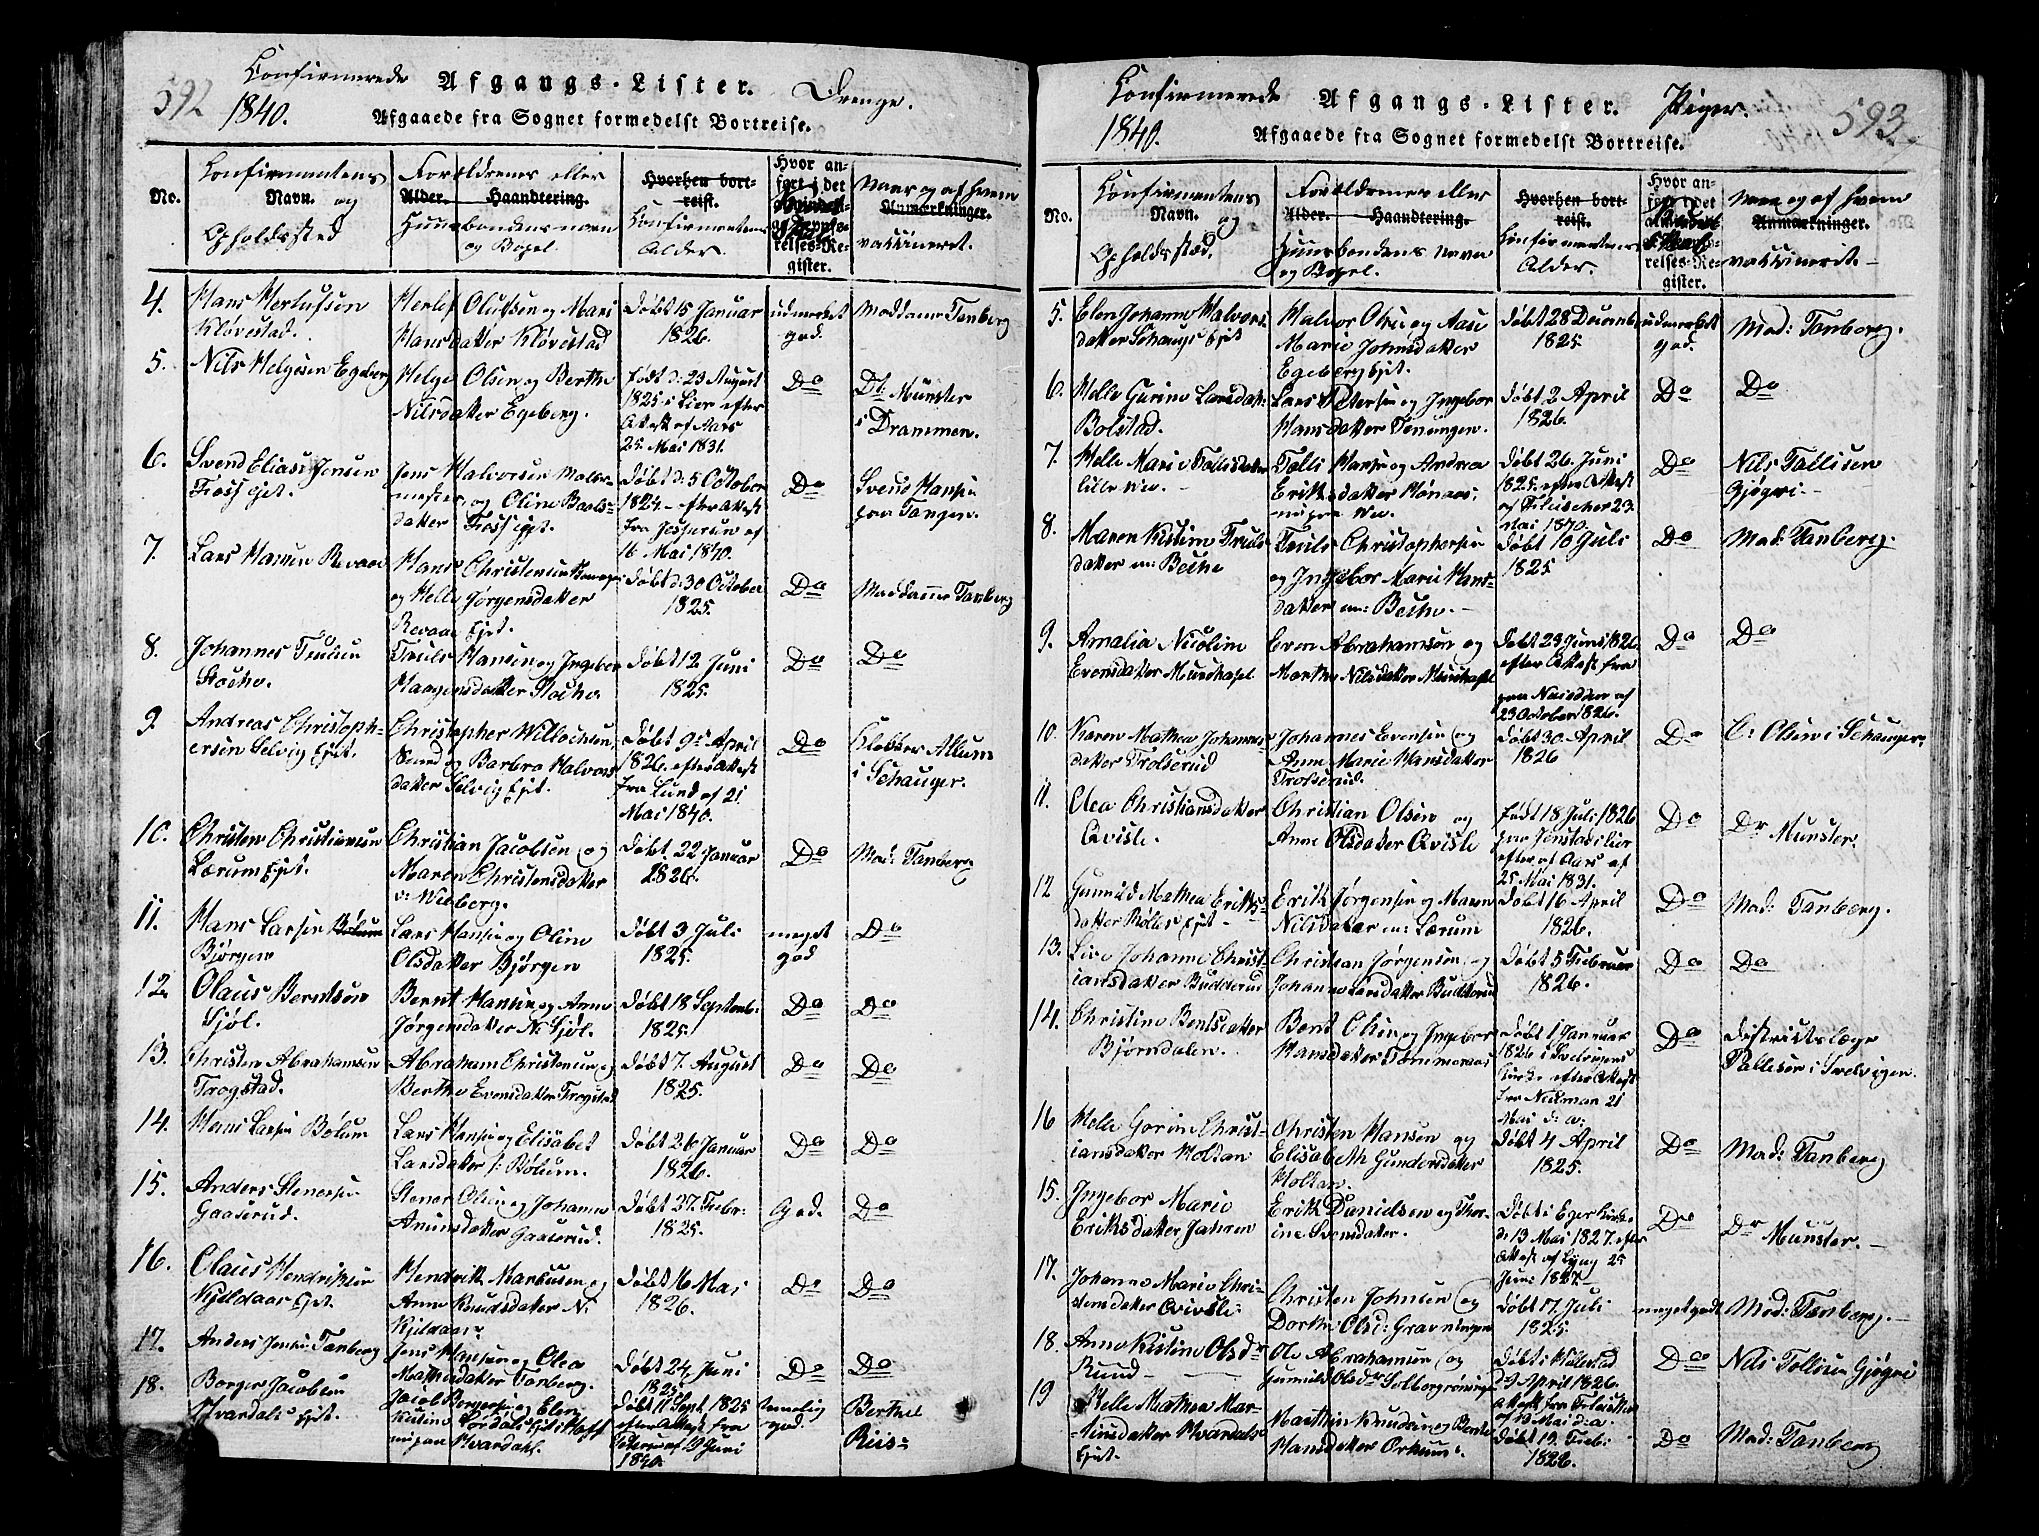 592
Confirmerede
1840.
Afgangs-Lister.
Drenge.
Afgaaede fra Sognet formedelst Bortreise.
No.
Confirmantens
Navn. og
Opholdssted
Forældrenes eller
Alder. Haandtering.
Huusbondens navn
og Bopel.
Hvorhen bort-
reist.
Confirmantens
Alder.
Hvor an-
ført i det
relses-Re-
gister.
Naar og af hvem
Anmærkninger.
vaccineret.
4.
Hans Herlufsen
Kløvestad.
Herlof Olufsen og Mari
Hansdatter Kløvestad
døbt 15 Januar
1826.
udmerket
god.
Maddame Tanberg
5.
Nils Helgesen Egeberg
Helge Olsen og Berthe
Nilsdatter Egeberg.
født d: 23 August
1825 i Lier efter
Attest af Aars
25. Mai 1831.
Do
Dr. Munster
i Drammen.
6.
Svend Elias Jensen
Foss Ejet.
Jens Halvorsen
og Oline
datter Foss Ejet.
døbt d: 5 October
1824 - efter Attest
fra Jespersen af
16 Mai 1840.
Do
Svend Hansen
paa Tangen.
7.
Lars Hansen Revaae
Hans Christensen
og Helle Jørgensdatter
Revaae Ejet.
døbt d: 30 October
1825.
Do
Maddame Tanberg
8.
Johannes Trulsen
Truls Hansen og Ingebor
Haagensdatter
døbt 12 Juni
1825.
Do
Do
9.
Andreas Christoph-
ersen Selvig Ejet.
Christopher Willochsen
og Barbro Halvors
datter Selvig Ejet.
døbt 9de April
1826. efter Attest
fra Lund af 21
Mai 1840.
Do
Klokker Album
i Schauger.
10.
Christen Christiansen
Lærum Ejet.
Christian Jacobsen og
Maren Christensdatter
v: Wiberg.
døbt. 22 Januar
1826.
Do
Mad: Tanberg
11.
Hans Larsen Bølum
Bjørgen
Lars Hansen og Oline
Olsdatter Bjørgen
døbt 3 Juli
1825.
meget
god
Do
12.
Olaus Berntsøn
Sjøl.
Bernt Hansen og Anne
Jørgensdatter N: Sjøl.
døbt 18 Septemb:
1825.
Do
Do
13.
Christen Abrahamsen
Trogstad.
Abraham Christensen og
Berthe Evensdatter Trogstad
døbt 7. August
1825.
Do
Do
14.
Hans Larsen Bølum
Lars Hansen og Elisabet
Larsdatter Bølum.
døbt 26 Januar
1826.
Do
Do
15.
Anders Stenersen
Gaaserud.
Stener Olsen og Johanne
Amundsdatter Gaaserud.
døbt 27. Febr:
1825.
God.
Do
16.
Olaus Hendriksen
Kjeldaas Ejet.
Hendrik Markusen og
Anne Knudsdatter N:
Kjeldaas.
døbt 16 Mai
1826.
Do
Do
17.
Anders Jensen Tanberg
Jens Hansen og Olea
Mathisdatter Tanberg.
døbt 24, Juni
1825.
Do
Do
18.
Borger Jacobsen
Hvardals Ejet.
Jacob Borgersen og Elen
Kistine
Hvardahl.
døbt 11 Sept. 1825
efter Attest fra
19 Juni
1840.
temelig
god.
Berthe
Riis
Confirmerede
1840.
Afgangs-Lister.
Piger.
593
Afgaaede fra Sognet formedelst Bortreise.
No.
Confirmantens
Navn.
og
Opholdssted.
Forældrenes eller
Alder. Haandtering.
Huusbondens navn
og Bopel.
Hvorhen bort-
reist.
Confirmantens
Alder.
Hvor an-
ført i det
relses-Re-
gister.
Naar og af hvem
Anmærkninger.
vaccineret.
5.
Elen Johanne Halvors
datter Schaugs Ejet
Halvor Olsen og Aase
Marie Johnsdatter
Egeberg Ejet.
døbt 28 Decemb:
1825
udmerket
god.
Mad: Tanberg.
6.
Helle Gurine Larsdat:
Bolstad.
Lars Petersen og Ingebor
Hansdatter
døbt 2 April
1826.
Do
Do
7.
Helle Marie Tollisdatter
lille
Tolli Hansen og Andrea
Eriksdatter
døbt 26 Juni
1825. efter Attest
af Fleischer 23.
Mai 1840.
Do
Nils Tollisen
Gjøgri.
8.
Maren Kistine Truls
datter
Truls Christophersen
og Ingebor Marie Hans-
datter
døbt 10 Juli
1825
Do
Mad: Tanberg.
9.
Amalia Nicoline
Evensdatter
Even Abrahamsen og
Marthe Nilsdatter
døbt 29 Juni 1826.
efter Attest fra
23 October 1826.
Do
Do
10.
Karen Mathea Johannes
datter Trolserud
Johannes Evensen og
Anne Marie Hansdatter
Trolserud.
døbt 30. April
1826
Do
C: Olsen i Schauger.
11.
Olea Christiansdatter
Qvisle.
Christian Olsen og
Anne Olsdatter Qvisle
født 18 Juli 1826
efter at Aars af
25 Mai 1831.
Do
Dr Munster.
12
Gunnild Mathea Eriks-
datter
Erik Jørgensen og Maren
Nilsdatter Lærum
døbt 16 April
1826.
Do
Mad: Tanberg.
13.
Live Johanne Christ-
iansdatter Budderud
Christian Jørgensen og
Johanne Larsdatter Budderud
døbt 5 Februar
1826.
Do
Do
14.
Christine Bentsdatter
Bjørndalen.
Bent Olsen og Ingebor
Hansdatter Tømmeraas
døbt 1 Januar
1826 i Svelvigens
Kirke efter Attest
fra Neuman 21
Mai d: a.
Do
Districtslæge
Tallesen i Svelvigen.
16
Helle Gorine Christ-
iansdatter Holtan
Christen Hansen og
Elisabeth Gundersdatter
Holtan.
døbt 4 April
1825.
Do
Mad: Tanberg
15.
Ingebor Marie
Eriksdatter
Erik Danielsen og Thor-
ine Svensdatter.
døbt i Eger Kirke
d: 13 Mai 1827. efter
Attest af Lyng 25
Juni 1827.
Do
Dr Munster.
17.
Johanne Marie Chri-
stensdatter
Christen Johnsen og
Dorthe Olsd: Gravningen
døbt 17. Juli
1825.
meget godt
Mad: Tanberg.
18.
Anne Kistine Olsdr
Rund
Ole Abrahamsen og
Gunnild Olsdr Solbergrøningen
døbt i
d 9 April 1826.
Attest fra Fleischer
af 19 Mai d: a.
Do
Nils Tollisen Gjøgri
19
Helle Mathea Mar-
tinsdatter Hvardals
Ejet.
Marthin Knudsen og Berthe
Hansdatter
døbt 19. Febr:
1826.
Do
Mad: Tanberg